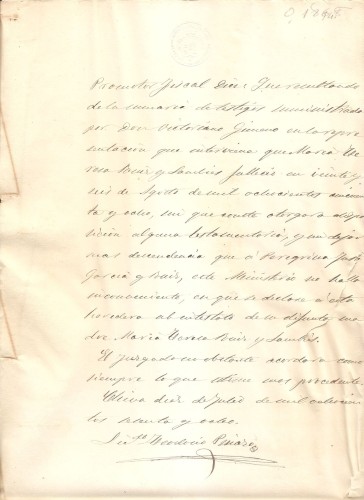 Promotor Fiscal Dice: Que resultando
de la sumaria de testigos suministrada
por Don Victoriano Gimeno en la repre
sentacion que interviene que Maria Te
resa Ruiz y Sanchis fallecio en veinte y
seis de Agosto de mil ochocientos cincuen
ta y ocho, sin que conste otorgara dispo
sicion alguna testamentaria, y sin dejar
mas descendencia que á Peregrina
Garcia y Ruiz, este Ministerio no halla
inconveniente, en que se declare á esta
heredera ab intestato de su difunta ma
dre Maria Teresa Ruiz y Sanchis.
El juzgado no obstante acordara como
siempre lo que estime mas procedente
Chiva diez de Julio de mil ochocien
tos sesenta y ocho.
Teodocio